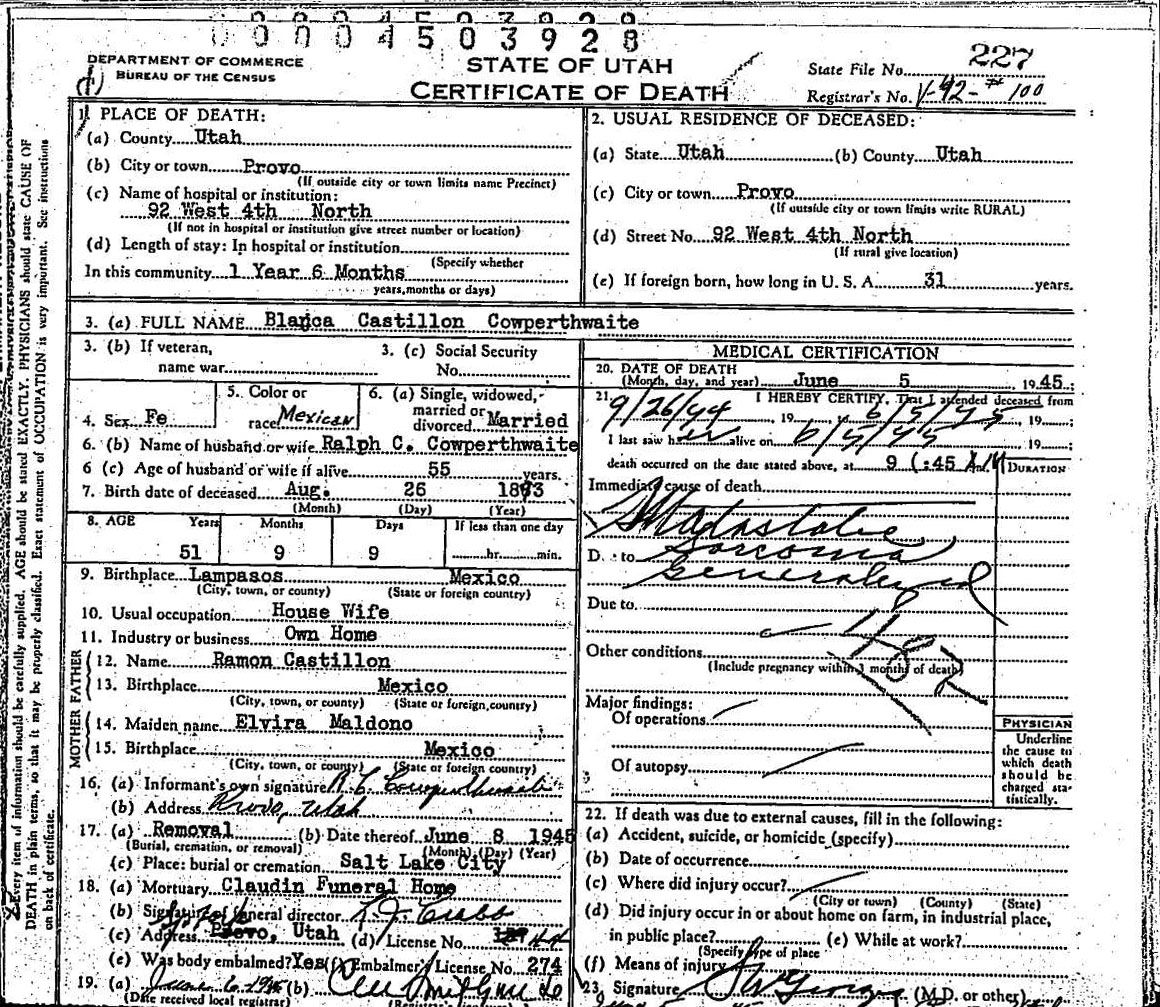 00004503928
DEPARTMENT OF COMMERCE
BUREAU OF THE CENSUS
STATE OF UTAH
CERTIFICATE OF DEATH
State File No. 227
Registrar's No. V-92-#100
Every item of information should be carefully supplied. AGE should be stated EXACTLY. PHYSICIANS should state CAUSE OF
DEATH in plain terms, so that it may be properly classified. Exact statement of OCCUPATION is very important. See instructions
on back of certificate.
1. PLACE OF DEATH:
(a) County Utah
(b) City or town Provo
(If outside city or town limits name Precinct)
(c) Name of hospital or institution:
92 West 4th North
(If not in hospital or institution give street number or location)
(d) Length of stay: In hospital or institution
(Specify whether
In this community 1 Year 6 Months
years, months or days)
2. USUAL RESIDENCE OF DECEASED:
(a) State Utah (b) County Utah
(c) City or town Provo
(If outside city or town limits write RURAL)
(d) Street No. 92 West 4th North
(If rural give location)
(e) If foreign born, how long in U. S. A. 31 years.
3. (a) FULL NAME Blanca Castillon Cowperthwaite
3. (b) If veteran,
name war
3. (c) Social Security
No.
4. Sex Fe
5. Color or
race Mexican
6. (a) Single, widowed,
married or
divorced Married
6. (b) Name of husband or wife Ralph C. Cowperthwaite
6 (c) Age of husband or wife if alive 55 years.
7. Birth date of deceased Aug. 26 1893
(Month) (Day) (Year)
8. AGE Years Months Days If less than one day
51 9 9 hr. min.
9. Birthplace Lampasos Mexico
(City, town, or county) (State or foreign country)
10. Usual occupation House Wife
11. Industry or business Own Home
FATHER
12. Name Ramon Castillon
13. Birthplace Mexico
(City, town, or county) (State or foreign country)
MOTHER
14. Maiden name Elvira Maldono
15. Birthplace Mexico
(City, town, or county) (State or foreign country)
16. (a) Informant's own signature R. C. Cowperthwaite
(b) Address Provo, Utah
17. (a) Removal (b) Date thereof June 8 1945
(Burial, cremation, or removal) (Month) (Day) (Year)
(c) Place: burial or cremation Salt Lake City
18. (a) Mortuary Claudin Funeral Home
(b) Signature of funeral director
(c) Address Provo, Utah (d) License No. 44
(e) Was body embalmed? Yes (f) Embalmer's License No. 274
19. (a) June 6 1945 (b)
(Date received local registrar)
MEDICAL CERTIFICATION
20. DATE OF DEATH
(Month, day, and year) June 5 1945
21. I HEREBY CERTIFY, That I attended deceased from
9/26/44 19 6/5/45 19
I last saw her alive on 6/5/45 19
death occurred on the date stated above, at 9:45 A.M.
DURATION
Immediate cause of death
Metastatic
D. to Sarcoma
generalized
Due to
Other conditions
(Include pregnancy within 3 months of death)
Major findings:
Of operations
Of autopsy
PHYSICIAN
Underline
the cause to
which death
should be
charged sta-
tistically.
22. If death was due to external causes, fill in the following:
(a) Accident, suicide, or homicide (specify)
(b) Date of occurrence
(c) Where did injury occur?
(City or town) (County) (State)
(d) Did injury occur in or about home on farm, in industrial place,
in public place? (e) While at work?
(Specify type of place
(f) Means of injury
23. Signature (M.D. or other)